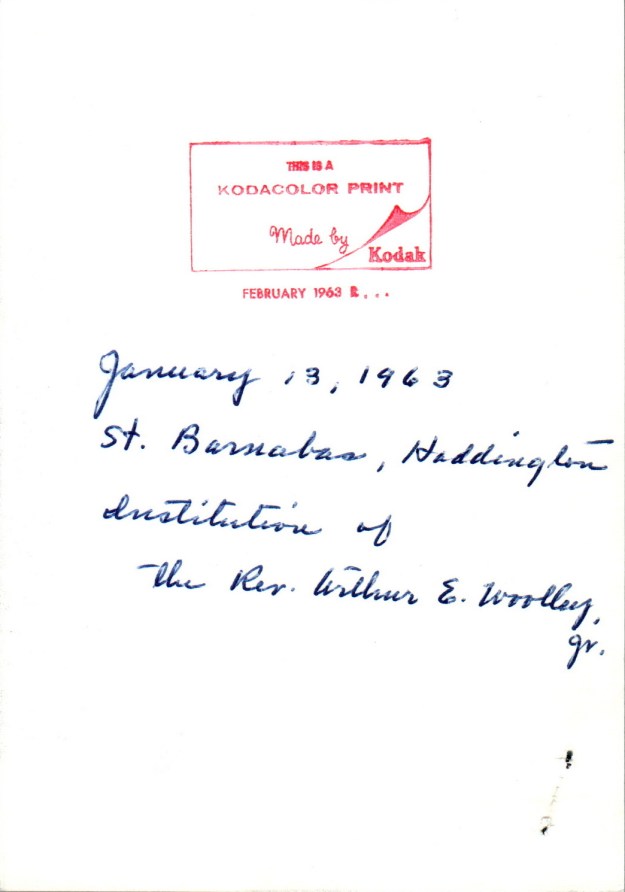 THIS IS A
KODACOLOR PRINT
Made by
Kodak
FEBRUARY 1963 R...
January 13, 1963
St. Barnabas, Haddington
Institution of
the Rev. Arthur E. Woolley,
Jr.